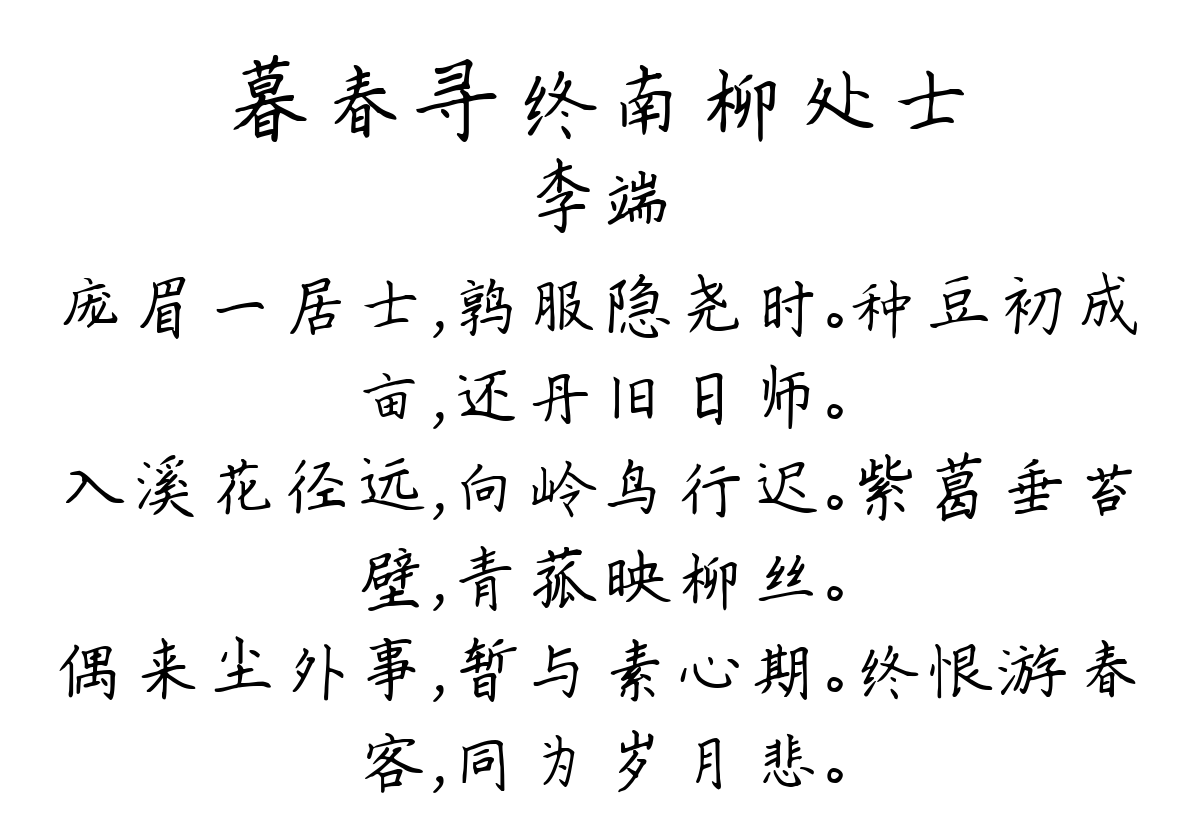 暮春寻终南柳处士
李端
庞眉一居士,鹑服隐尧时。种豆初成
亩,还丹旧日师。
入溪花径远,向岭鸟行迟。紫葛垂苔
壁,青菰映柳丝。
偶来尘外事,暂与素心期。终恨游春
客,同为岁月悲。